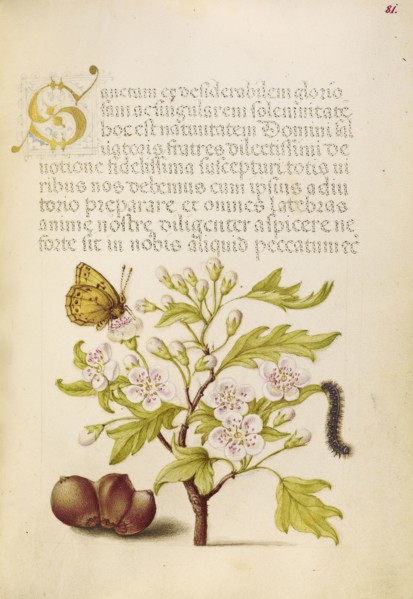 81.
Sanctam ec desiderabilem glorio
sam ac singularem solemnitatē
hoc est natiuitatem Domini sal
uatoris fratres dilectissimi de
uotione fidelissima suscepturi totis ui
ribus nos debemus cum ipsius adiu
torio preparare et omnes latebras
anime nostre diligenter aspicere ne
forte sit in nobis aliquid peccatum ec